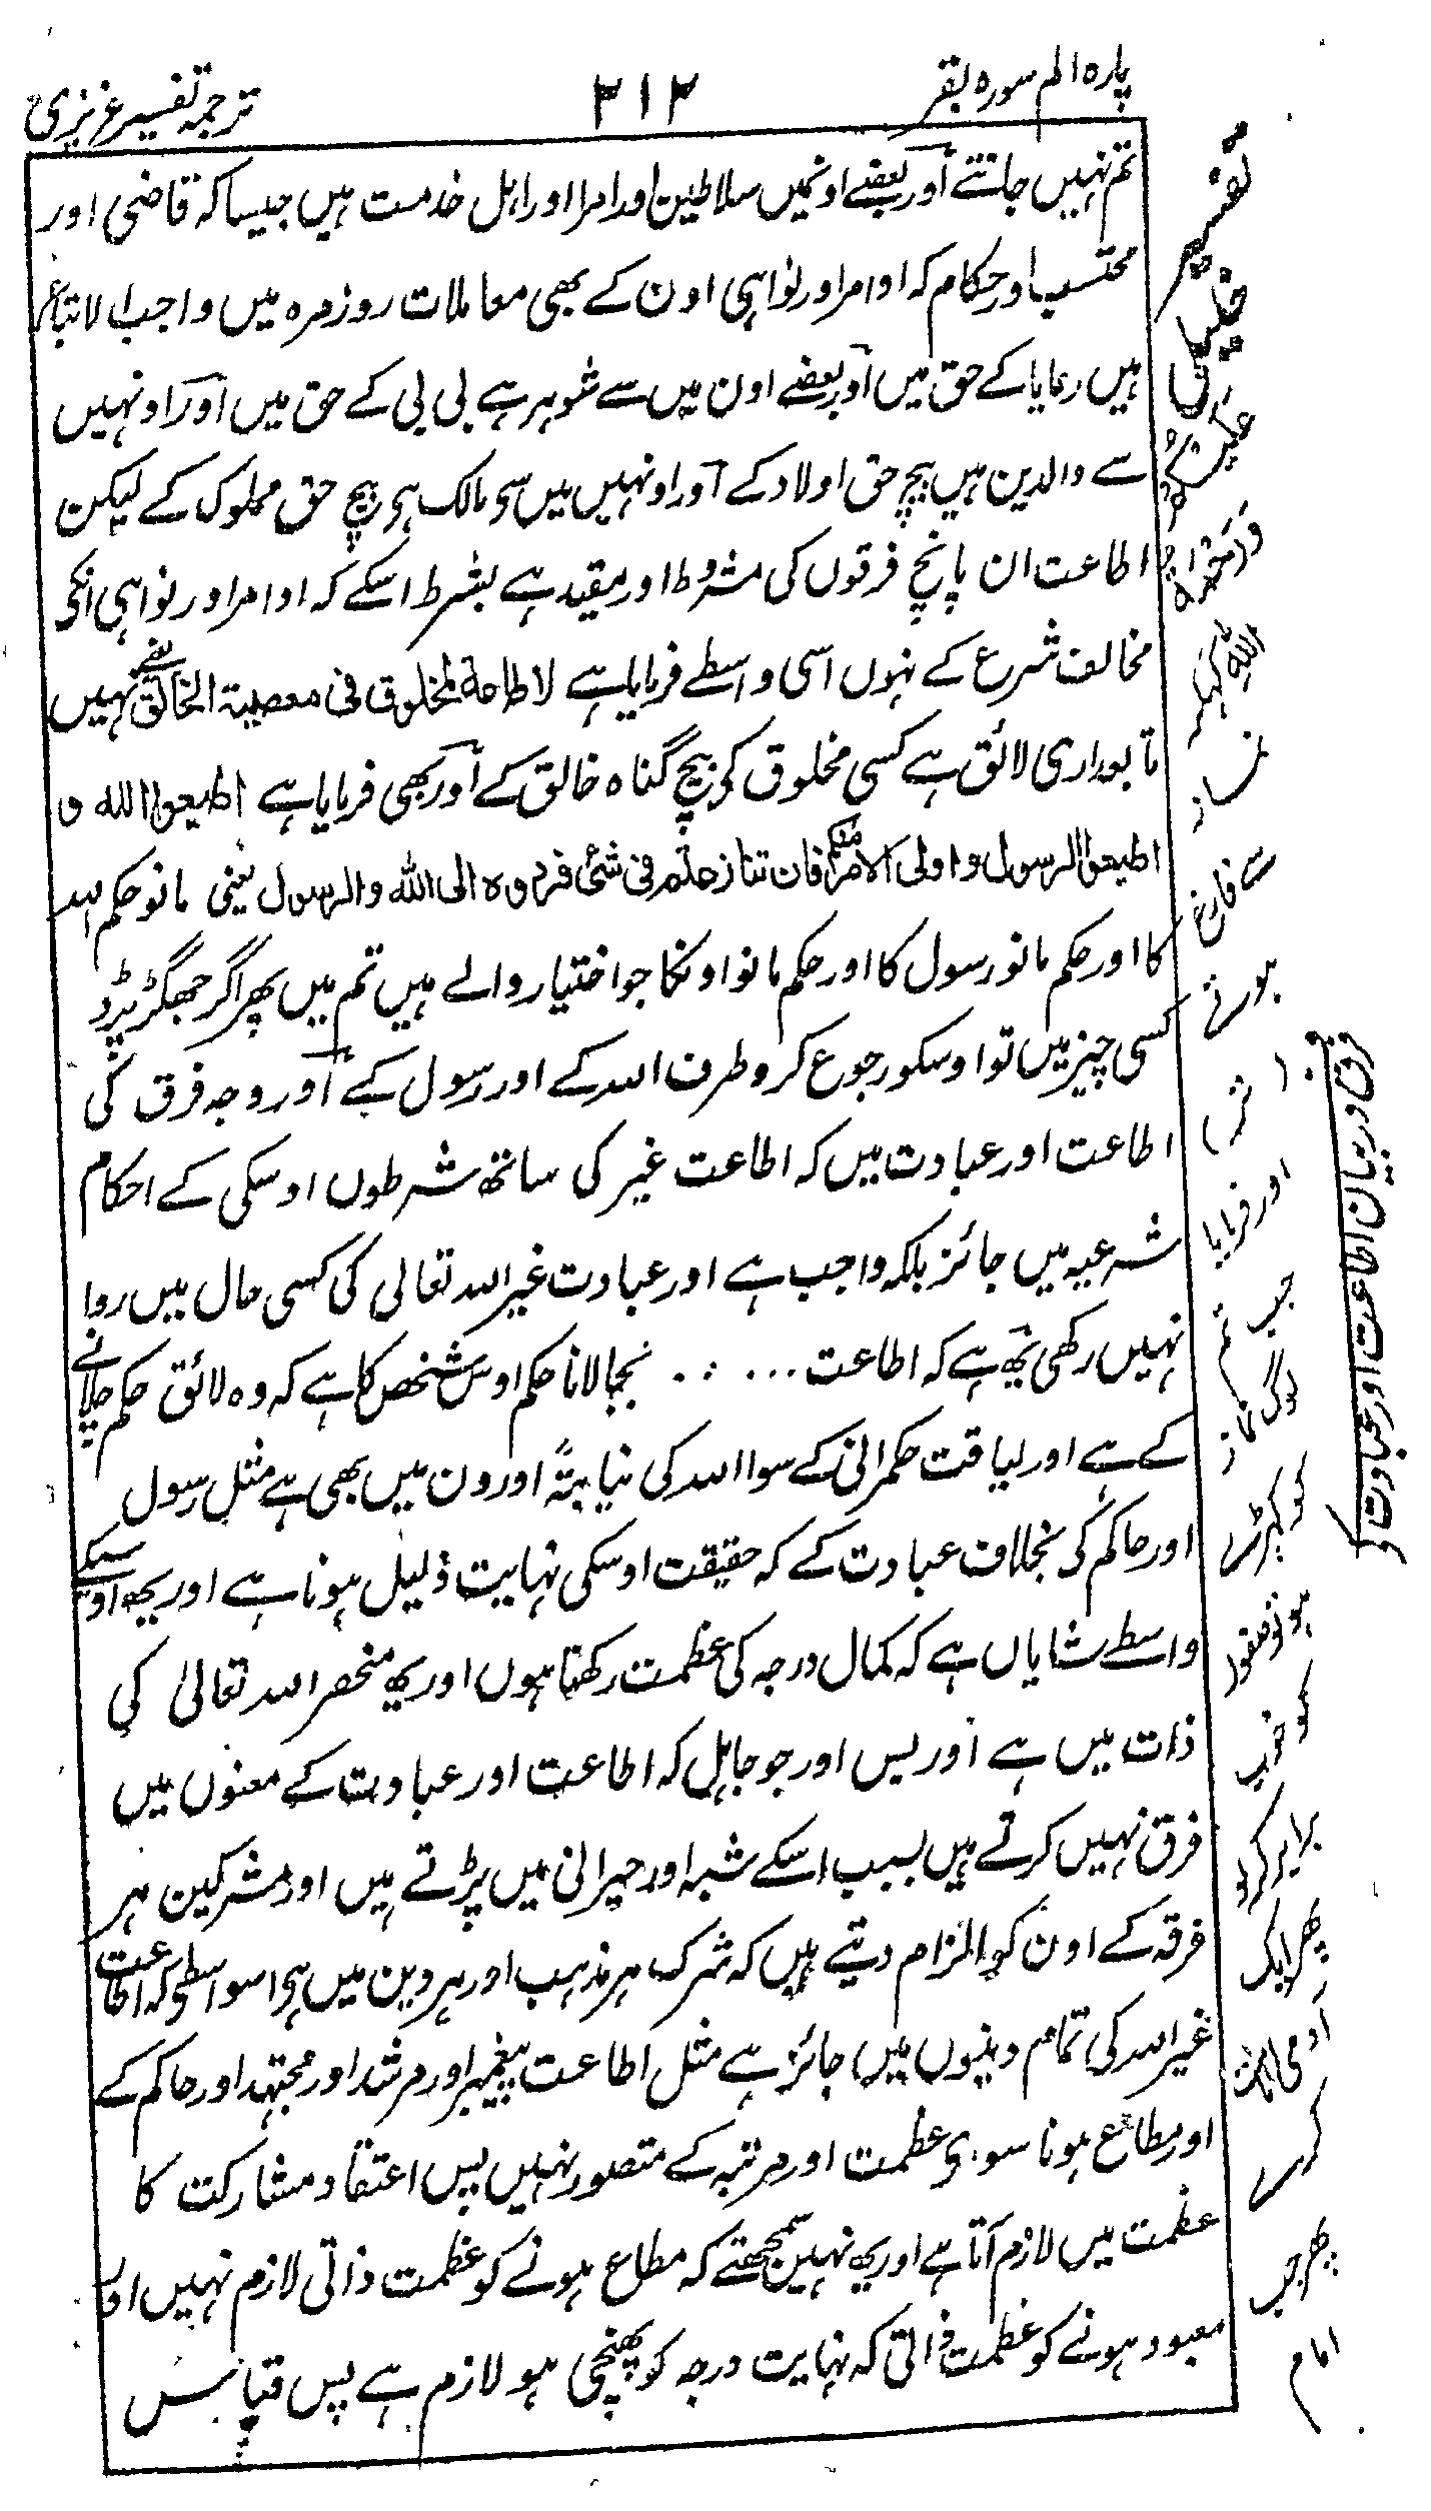 پاره الم سوره بقر
۳۱۲
ترجمہ تفسیر عزیزی
تم نہیں جانتے اور بعضے اونمیں سلاطین اور امرا اور اہل خدمت ہیں جیسا کہ قاضی اور
محتسب اور حکام کہ اوامر اور نواہی اون کے بھی معاملات روزمرہ میں واجب الاتباع
ہیں رعایا کے حق میں اور بعضے اون میں سے شوہر ہے بی بی کے حق میں اور اونہیں
سے والدین ہیں بیچ حق اولاد کے اور اونہیں میں سی مالک ہی بیچ حق مملوک کے لیکن
اطاعت ان پانچ فرقوں کی مشروط اور مقید ہے بشرط اسکے کہ اوامر اور نواہی انکی
مخالف شرع کے نہوں اسی واسطے فرمایا ہے لا طاعة لمخلوق فی معصیة الخالق یعنے نہیں
تابعداری لائق ہے کسی مخلوق کی بیچ گناہ خالق کے اور بھی فرمایا ہے اطیعوا الله و
اطیعوا الرسول و اولی الامر منکم فان تنازعتم فی شئ فردوه الی الله والرسول یعنی مانو حکم اللہ
کا اور حکم مانو رسول کا اور حکم مانو اونکا جو اختیار والے ہیں تم میں پھر اگر جھگڑ پڑو
کسی چیز میں تو اوسکو رجوع کرو طرف اللہ کے اور رسول کے اور وجہ فرق کی
اطاعت اور عبادت میں کہ اطاعت غیر کی ساتھ شرطوں اوسکی کے احکام
شرعیہ میں جائز بلکہ واجب ہے اور عبادت غیر اللہ تعالی کی کسی حال میں روا
نہیں رکھی یہ ہے کہ اطاعت ..... بجالانا حکم اوس شخص کا ہے کہ وہ لائق حکم چلانے
کے ہے اور لیاقت حکمرانی کے سوا اللہ کی نیابتہً اورون میں بھی ہے مثل رسول
اور حاکم کی بخلاف عبادت کے کہ حقیقت اوسکی نہایت ذلیل ہونا ہے اور یہ اوسیکے
واسطے شایاں ہے کہ کمال درجہ کی عظمت رکھتا ہوں اور یہ منحصر اللہ تعالیٰ کی
ذات میں ہے اور بس اور جو جاہل کہ اطاعت اور عبادت کے معنوں میں
فرق نہیں کرتے ہیں بسبب اسکے شبہ اور حیرانی میں پڑتے ہیں اور مشرکین ہر
فرقہ کے اون کو الزام دیتے ہیں کہ شرک ہر مذہب اور ہر دین میں ہی اسواسطی کہ اطاعت
غیر اللہ کی تمام دینوں میں جائز ہے مثل اطاعت پیغمبر اور مرشد اور مجتہد اور حاکم کے
اور مطاع ہونا سوای عظمت اور مرتبہ کے متصور نہیں پس اعتقاد مشارکت کا
عظمت میں لازم آتا ہے اور یہ نہیں سمجھتے کہ مطاع ہونے کو عظمت ذاتی لازم نہیں اور
معبود ہونے کو عظمت ذاتی کہ نہایت درجہ کو پہنچی ہو لازم ہے پس قیاس
سے فارغ
ہوئے
اور فرمایا
جب تم
لوگ نماز
کو کھڑے
ہو تو صفوں
کو خوب
برابر کرو
پھر ایک
آدمی امامت
کرے
پھر جب
امام
فرق درمیان اطاعت اور عبادت کے